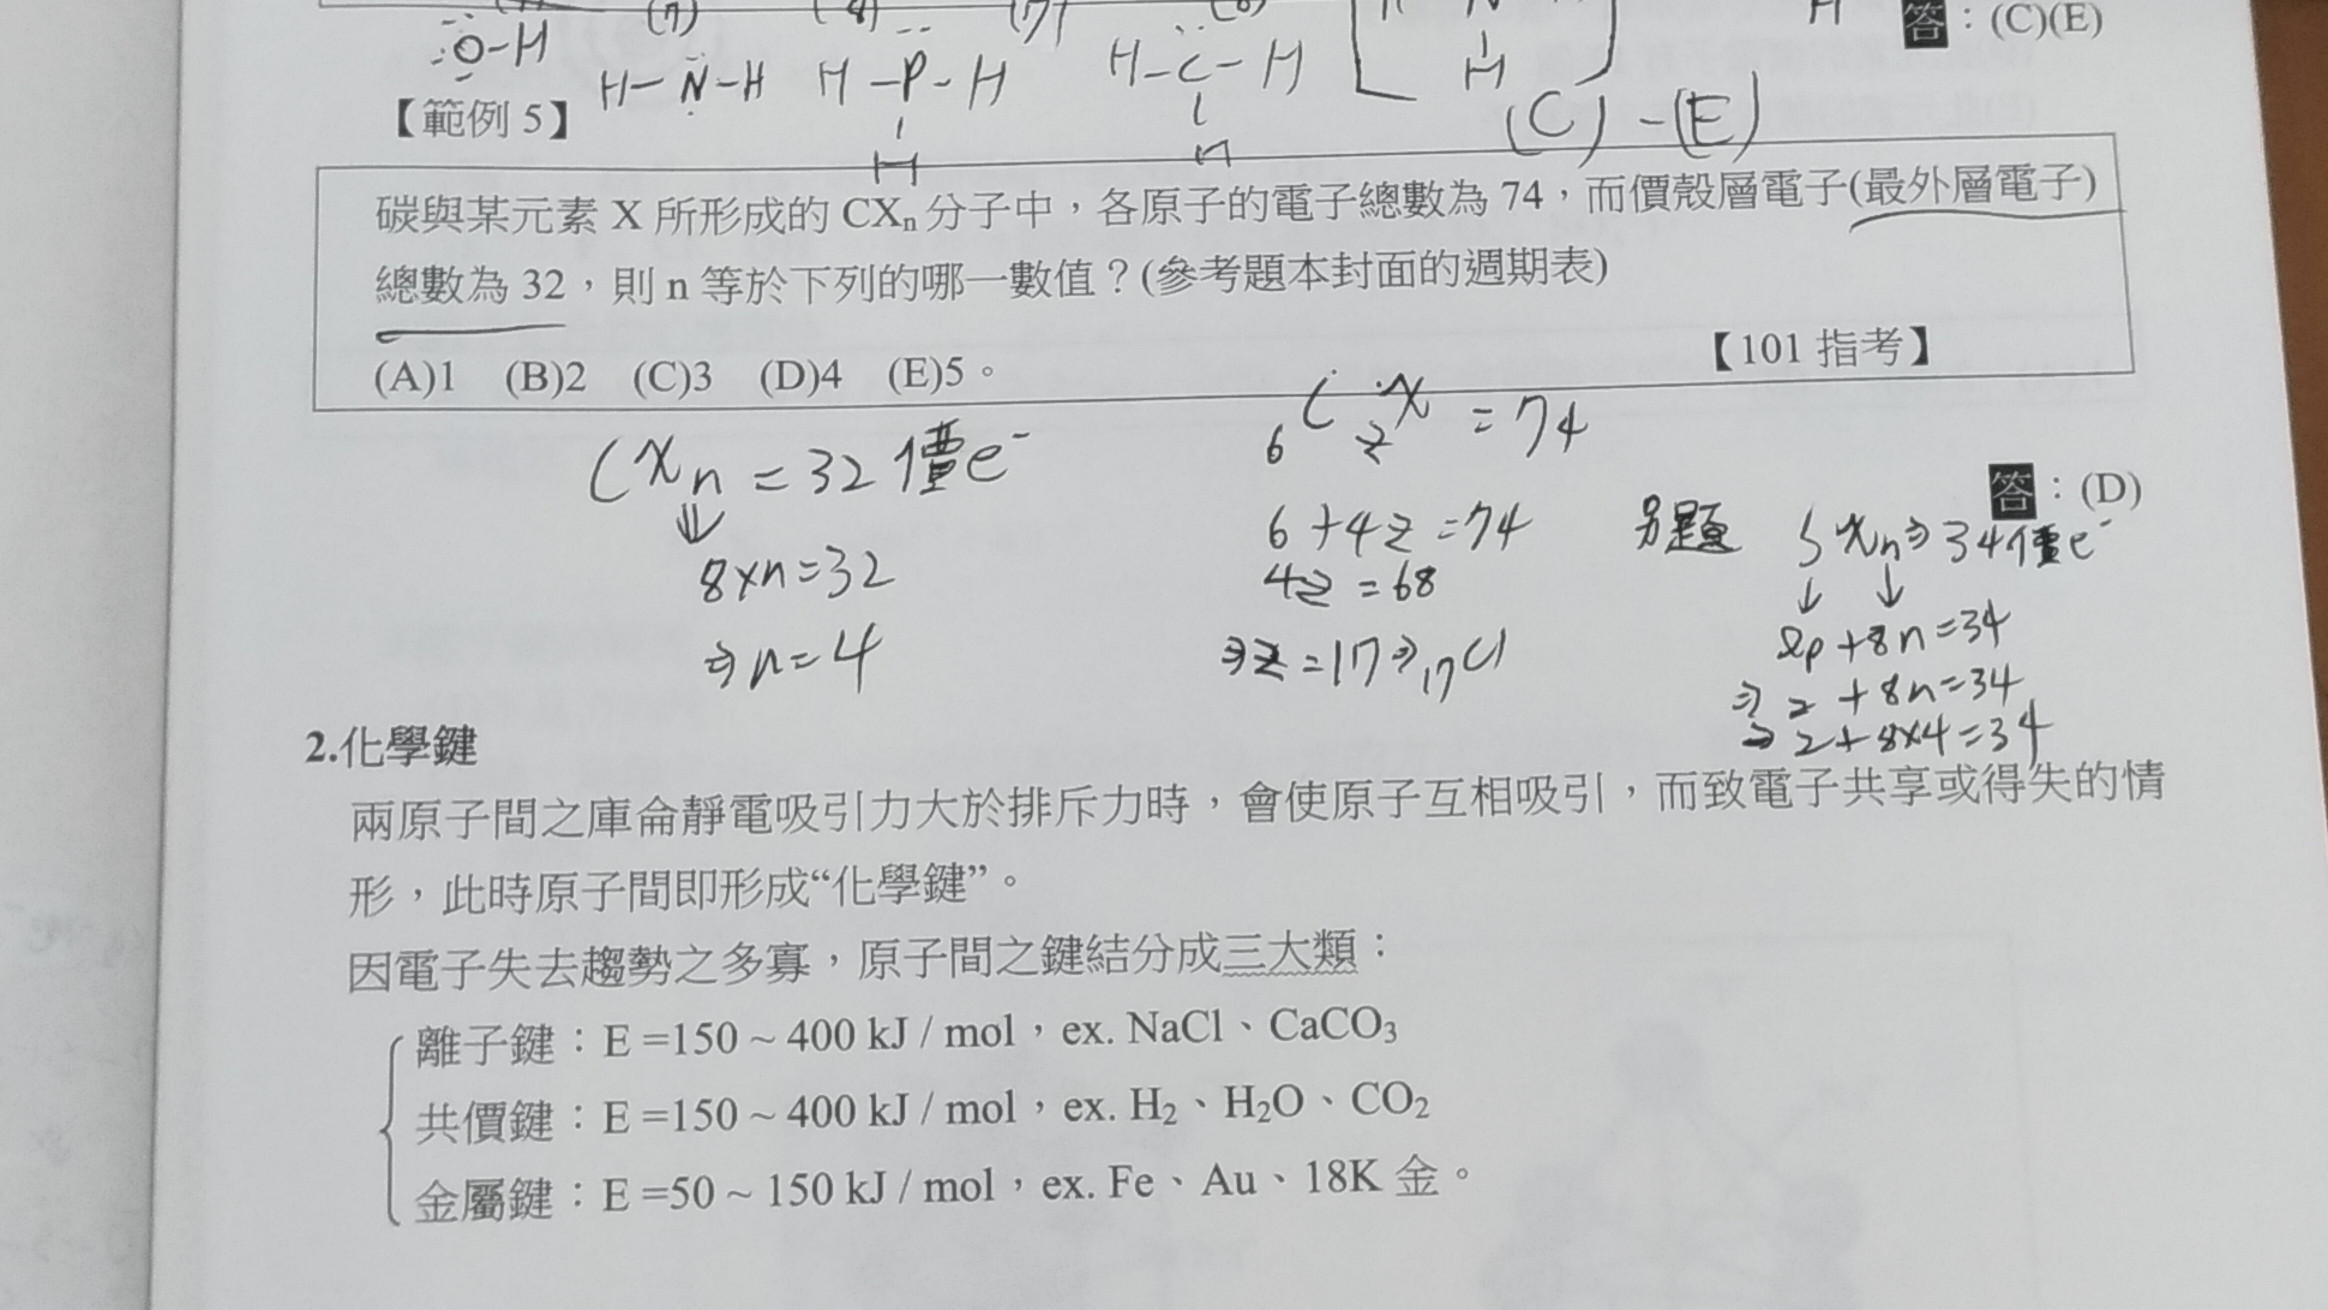 答：(C)(E)
O-H
H-N-H H-P-H H-C-H
H H
(C)-(E)
【範例 5】
碳與某元素 X 所形成的 CXn 分子中，各原子的電子總數為 74，而價殼層電子(最外層電子)
總數為 32，則 n 等於下列的哪一數值？(參考題本封面的週期表)
【101 指考】
(A)1 (B)2 (C)3 (D)4 (E)5。
答：(D)
CXn = 32 價e⁻
⇓
8×n=32
⇒n=4
6C zX = 74
6+4z=74
4z=68
⇒z=17⇒17Cl
另題 SXn⇒34價e⁻
↓ ↓
lp+8n=34
⇒2+8n=34
⇒2+8×4=34
2.化學鍵
兩原子間之庫侖靜電吸引力大於排斥力時，會使原子互相吸引，而致電子共享或得失的情
形，此時原子間即形成“化學鍵”。
因電子失去趨勢之多寡，原子間之鍵結分成三大類：
離子鍵：E =150 ~ 400 kJ / mol，ex. NaCl、CaCO3
共價鍵：E =150 ~ 400 kJ / mol，ex. H2、H2O、CO2
金屬鍵：E =50 ~ 150 kJ / mol，ex. Fe、Au、18K 金。